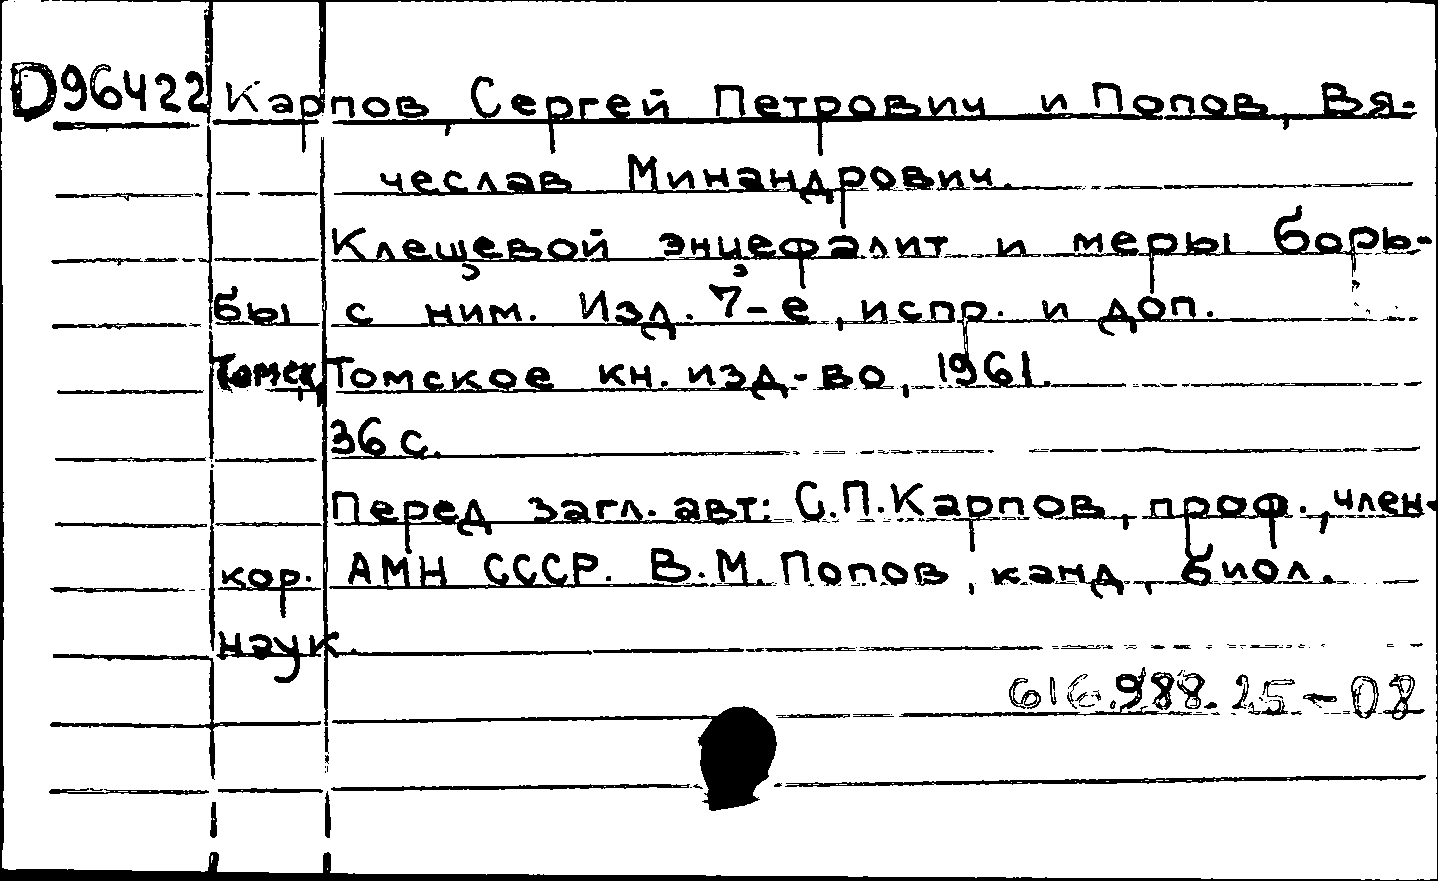 D96422 Карпов, Сергей Петрович и Попов, Вя-
чеслав Минандрович.
Клещевой энцефалит и меры борь-
бы с ним. Изд. 7-е, испр. и доп.
Томск, Томское кн. изд-во, 1961.
36 с.
Перед загл. авт: С.П. Карпов, проф., член-
кор. АМН СССР. В.М. Попов, канд, биол.
наук.
616.988.25-08